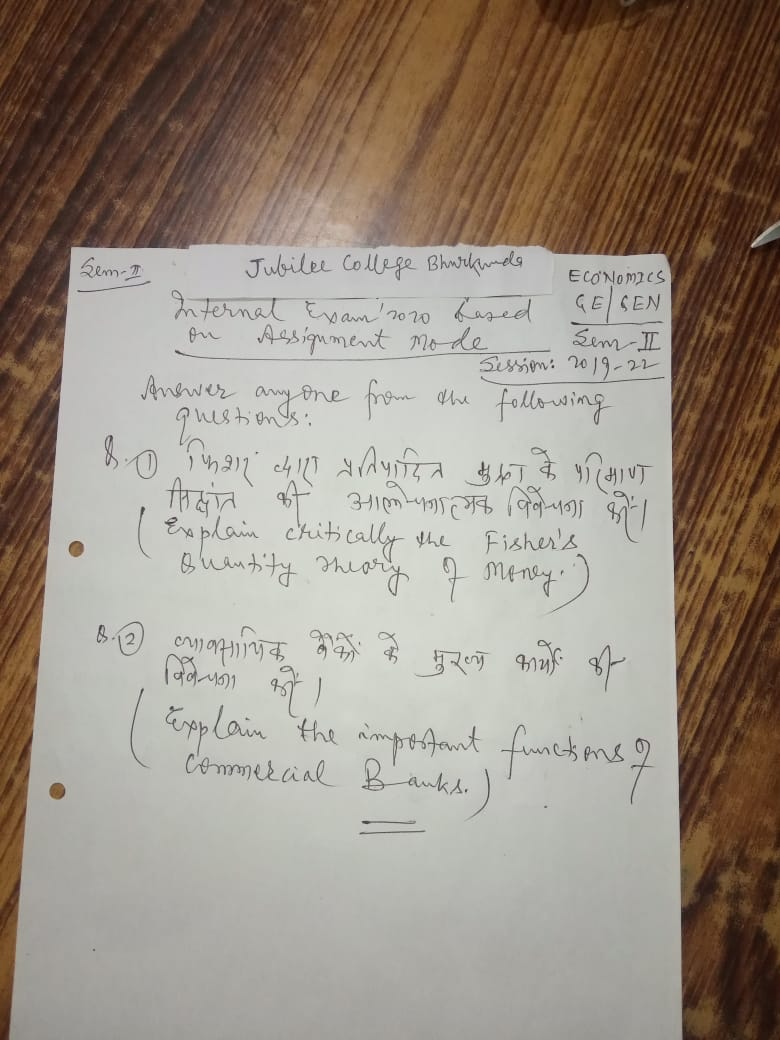 Sem-II
Jubilee College Bhurkunda
ECONOMICS
GE/GEN
Internal Exam' 2020 based
on Assignment Mode
Sem-II
Session: 2019-22
Answer any one from the following
questions:
Q. 1 फिशर द्वारा प्रतिपादित मुद्रा के परिमाण
सिद्धांत की आलोचनात्मक विवेचना करें।
(Explain critically the Fisher's
Quantity Theory of Money.)
Q. 2 व्यावसायिक बैंकों के मुख्य कार्यों की
विवेचना करें।
(Explain the important functions of
Commercial Banks.)